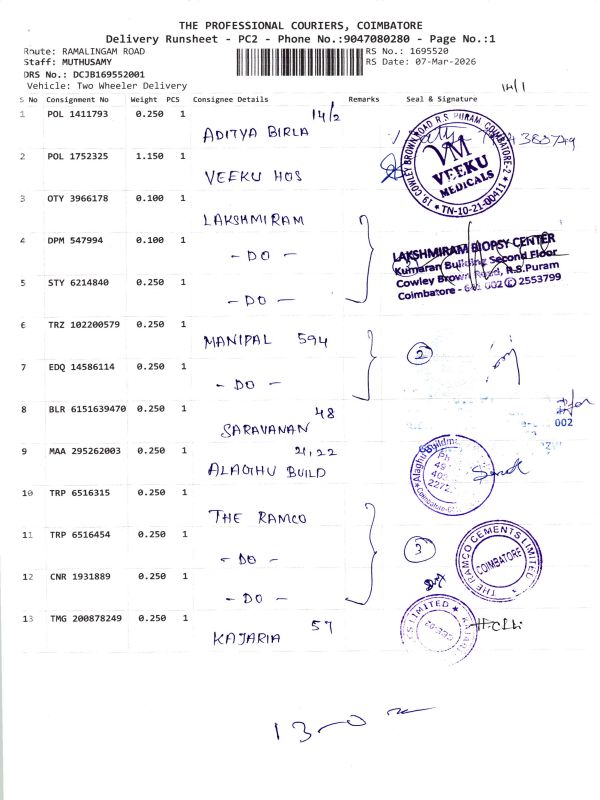 THE PROFESSIONAL COURIERS, COIMBATORE
Delivery Runsheet - PC2 - Phone No.:9047080280 - Page No.:1
Route: RAMALINGAM ROAD
RS No.: 1695520
Staff: MUTHUSAMY
RS Date: 07-Mar-2026
DRS No.: DCJB169552001
Vehicle: Two Wheeler Delivery
14/1
S No Consignment No Weight PCS Consignee Details Remarks Seal & Signature
1 POL 1411793 0.250 1 ADITYA BIRLA 14/2
2 POL 1752325 1.150 1 VEEKU HOS
19, COWLEY BROWN ROAD R.S. PURAM, COIMBATORE-2
VM
VEEKU
MEDICALS
TN-10-21-00411
3 OTY 3966178 0.100 1 LAKSHMIRAM
4 DPM 547994 0.100 1 - DO -
5 STY 6214840 0.250 1 - DO -
LAKSHMIRAM BIOPSY CENTER
Kumaran Building Second Floor
Cowley Brown Road, R.S.Puram
Coimbatore - 641 002 2553799
6 TRZ 102200579 0.250 1 MANIPAL 594
7 EDQ 14586114 0.250 1 - DO -
2
8 BLR 6151639470 0.250 1 SARAVANAN 48
002
9 MAA 295262003 0.250 1 ALAGHU BUILD 21,22
10 TRP 6516315 0.250 1 THE RAMCO
11 TRP 6516454 0.250 1 - DO -
12 CNR 1931889 0.250 1 - DO -
3
THE RAMCO CEMENTS LIMITED
COIMBATORE
13 TMG 200878249 0.250 1 KAJARIA 57
LIMITED
13-0